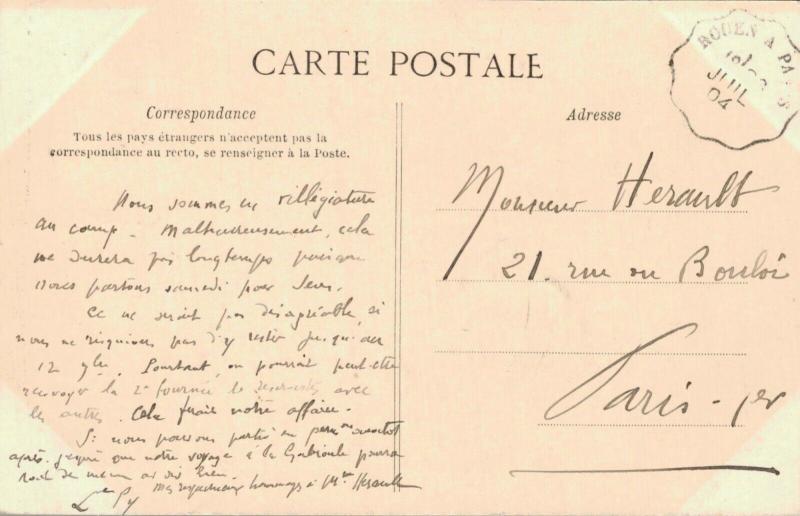 CARTE POSTALE
ROUEN A PARIS
JUIL
04
Correspondance
Tous les pays étrangers n'acceptent pas la
correspondance au recto, se renseigner à la Poste.
Nous sommes en villégiature
au camp. Malheureusement, cela
ne durera pas longtemps puisque
nous partons samedi pour
Ce ne serait pas désagréable, si
nous ne risquions pas d'y rester jusqu'au
12 Pourtant, on pourrait peut-être
renvoyer la 2e fournée de réservistes avec
les autres. Cela ferait notre affaire.
Si nous pouvons partir en permon aussitôt
après. j'espère que notre voyage à la pourra
de même
mes respectueux hommages à Mme Herault
Adresse
Monsieur Herault
21. rue du Bouloi
Paris - 1er